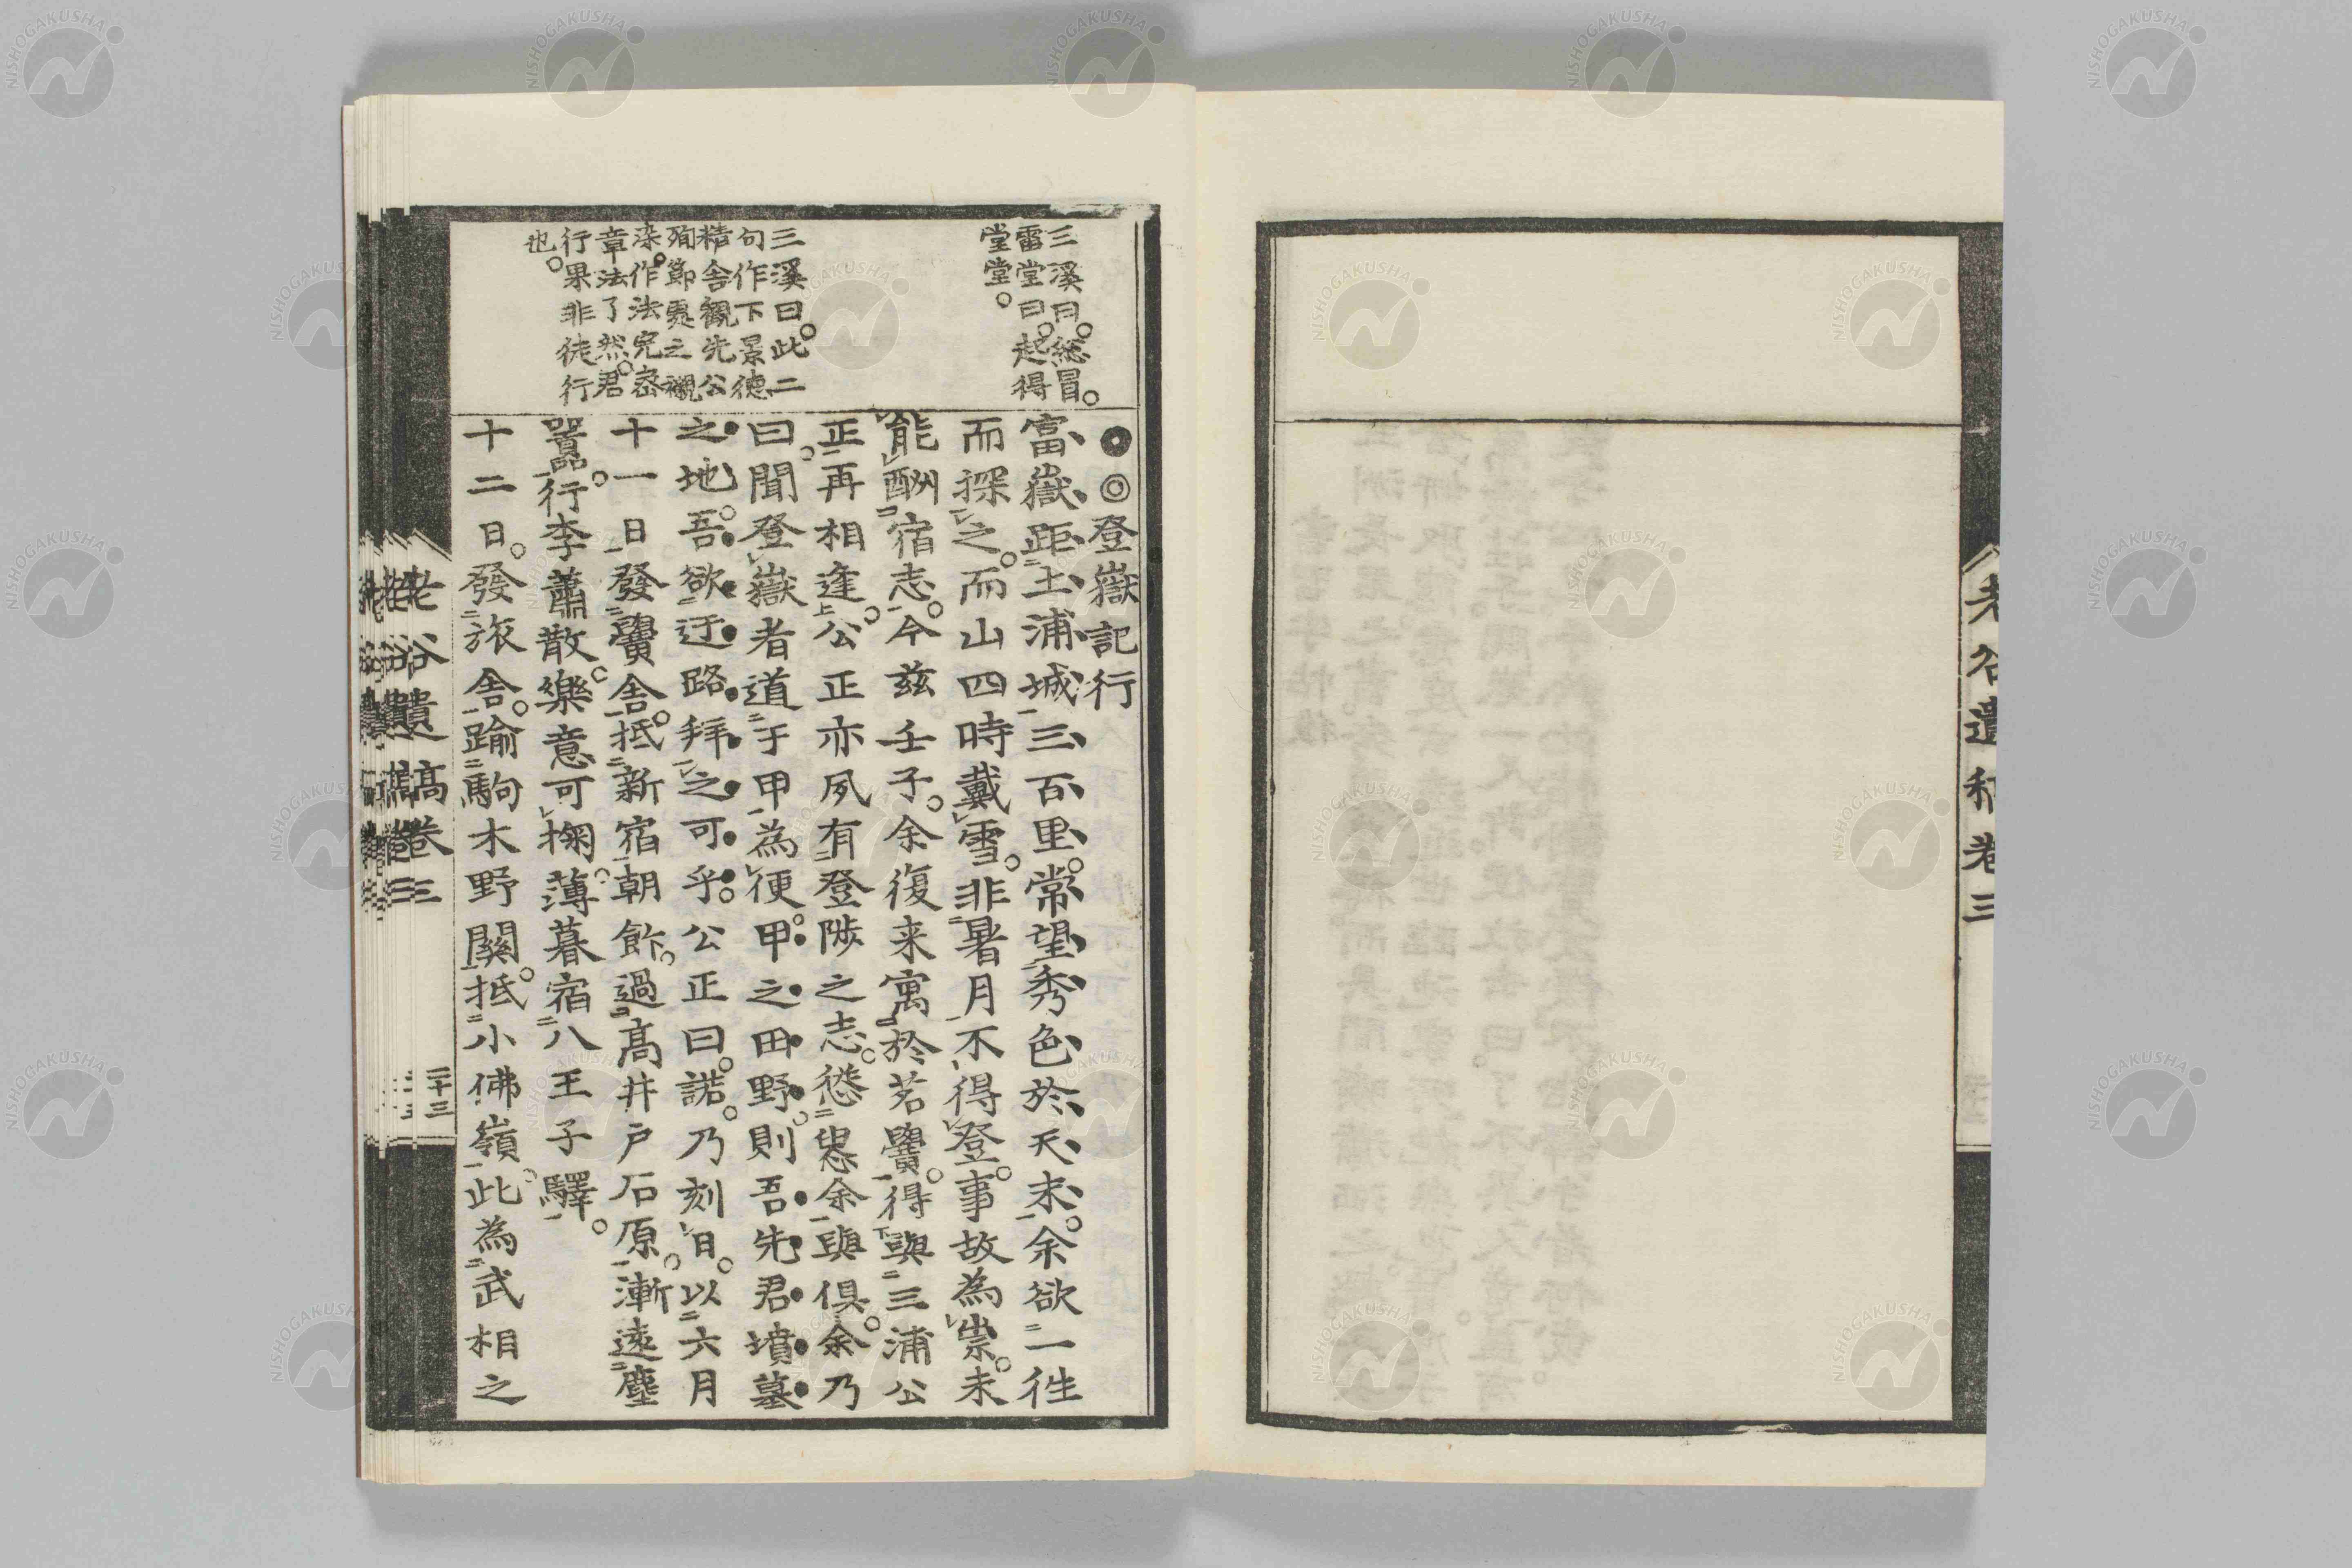 老谷遺稿卷三
三溪曰。總冒。
雷堂曰。起得
堂堂。
三溪曰。此二
句作下景德
精舍觀先公
殉節處之襯
染。作法完密
章法了然。君
行果非徒行
也。
●◎登嶽記行
富嶽距土浦城三百里。常望秀色於天末。余欲一往
而探之。而山四時戴雪。非暑月不得登。事故為祟。未
能酬宿志。今茲壬子。余復来寓於茗黌。得與三浦公
正再相逢。公正亦夙有登陟之志。慫慂余與俱。余乃
曰。聞登嶽者道于甲為便。甲之田野。則吾先君墳墓
之地。吾欲迂路拜之可乎。公正曰。諾。乃刻日。以六月
十一日發黌舍。抵新宿朝飰。過高井戶石原。漸遠塵
囂。行李蕭散。樂意可掬。薄暮宿八王子驛。
十二日。發旅舍。踰駒木野關。抵小佛嶺。此為武相之
老谷遺稿卷三
二十三
NISHOGAKUSHA